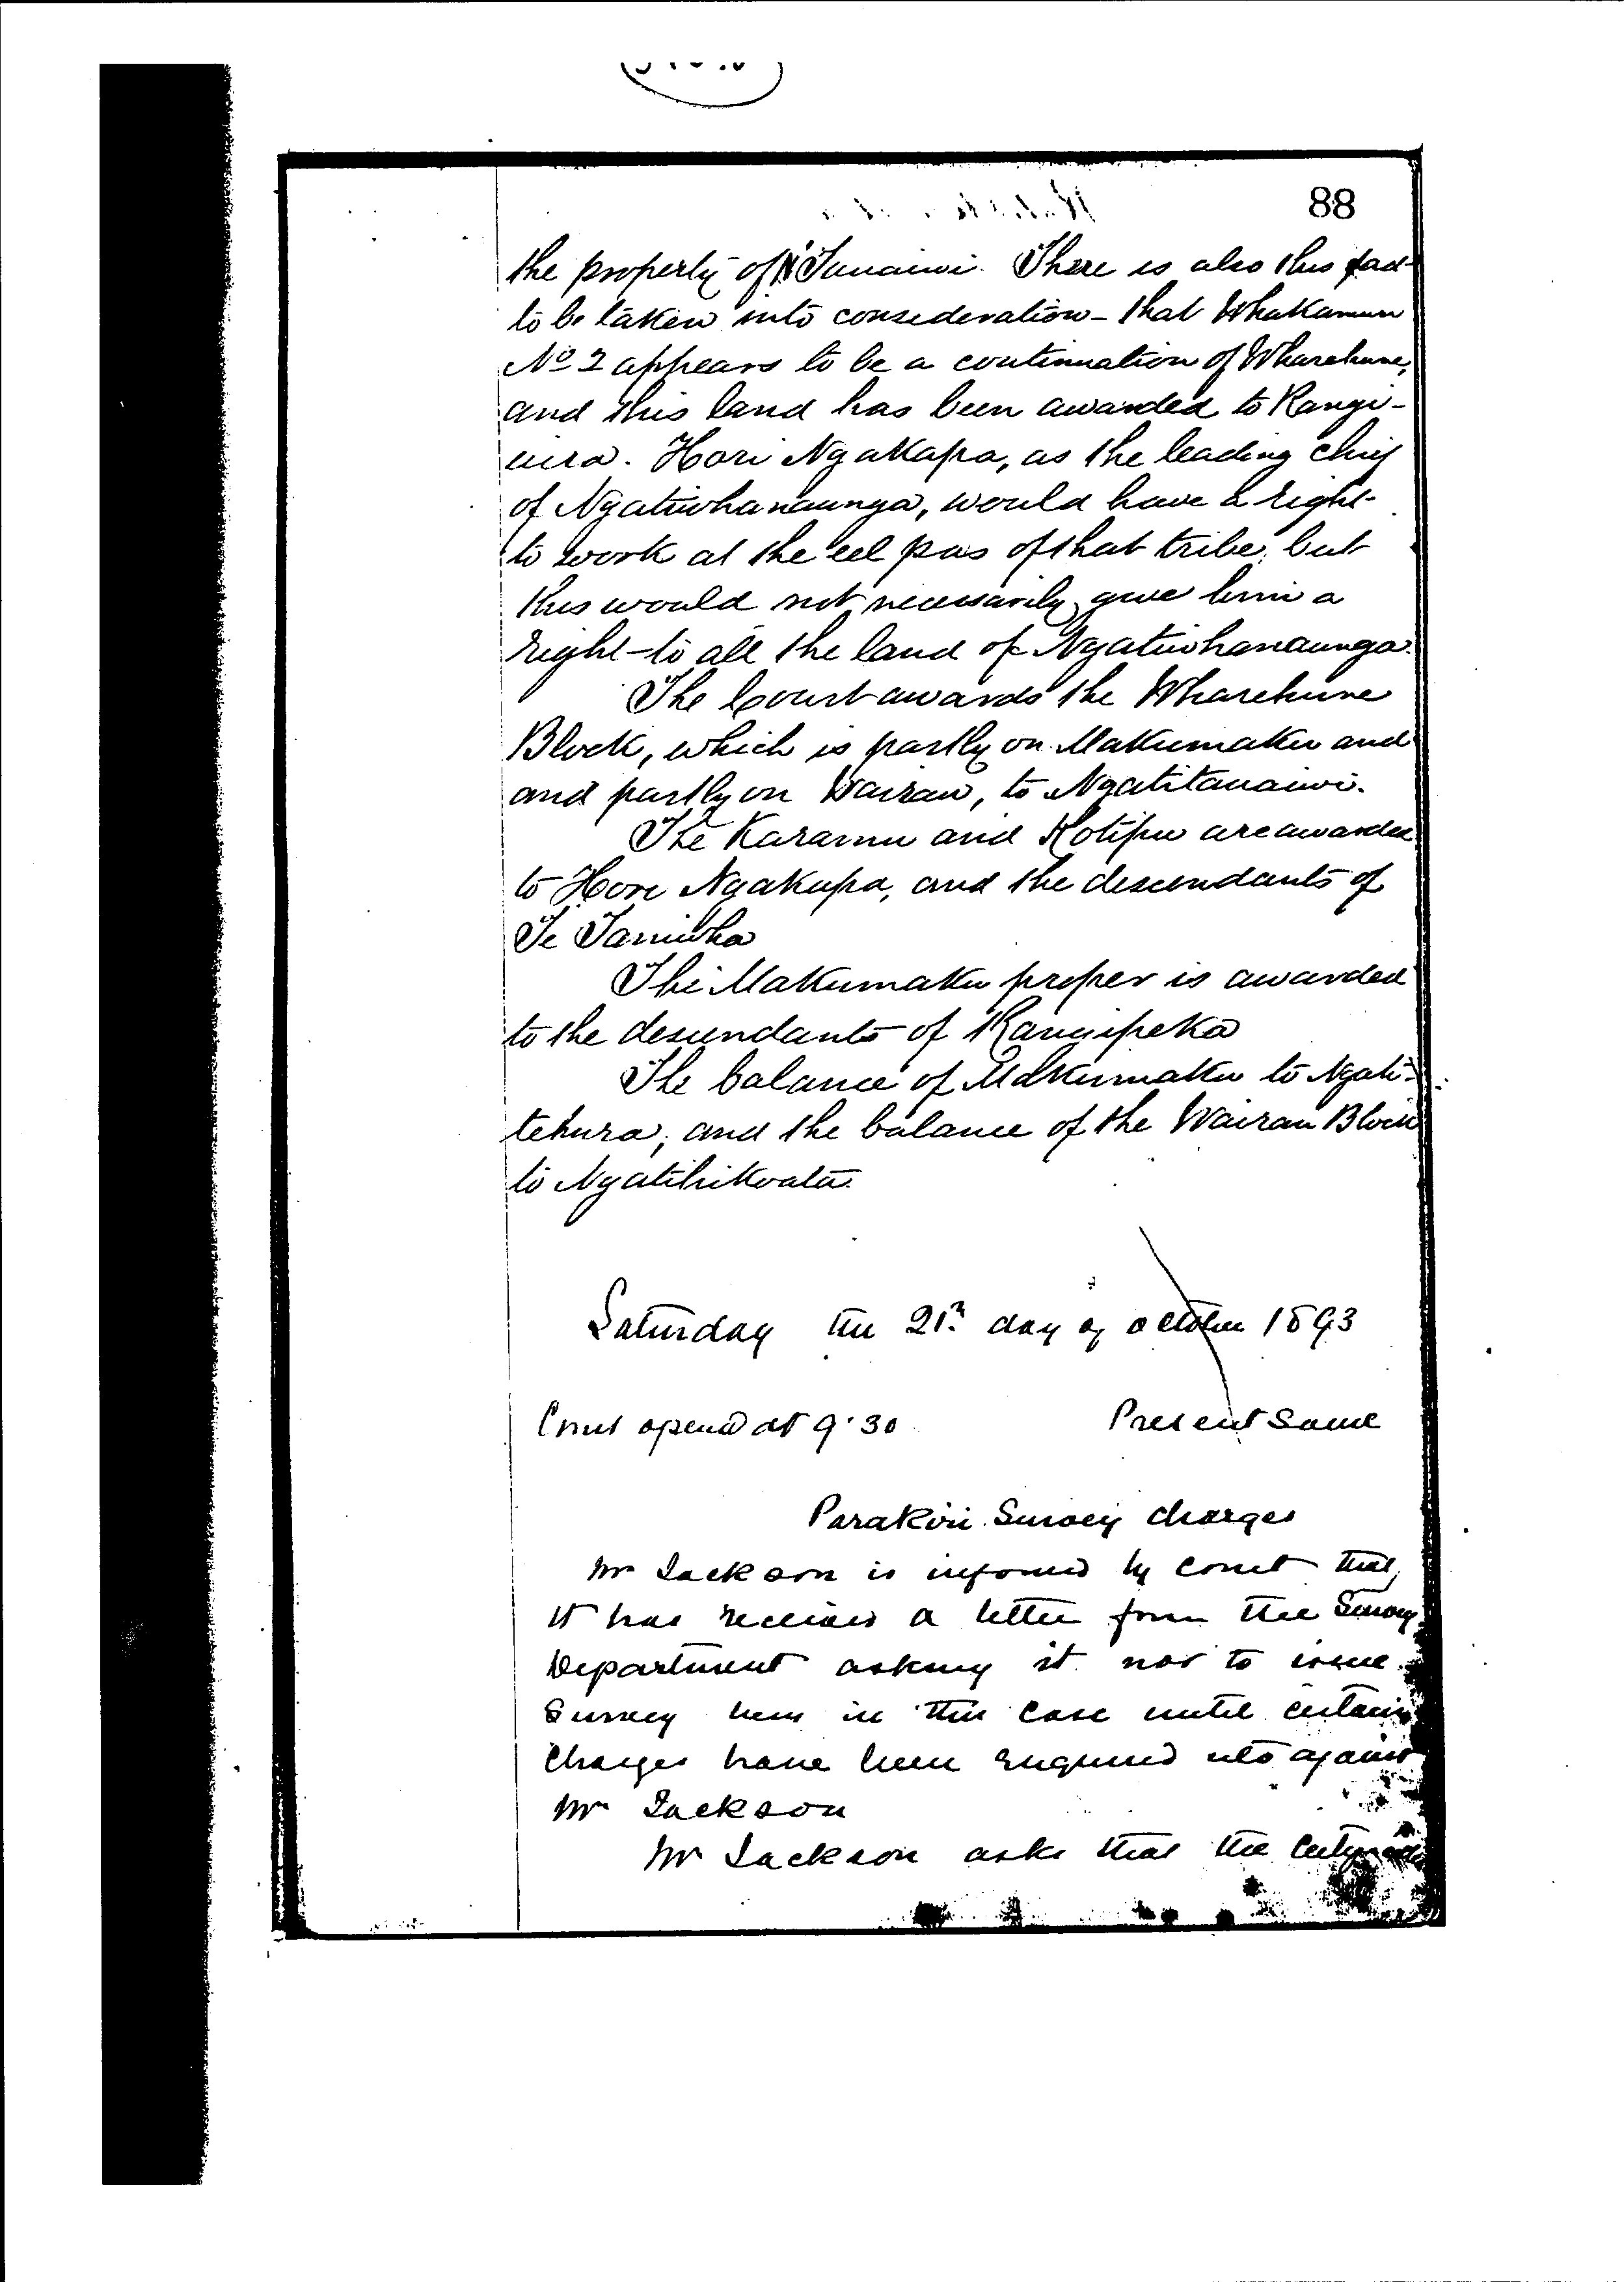 88
the property of N' Tunaiwi. There is also this fact
to be taken into consideration - that Whakamuri
No 2 appears to be a continuation of Wharehune,
and this land has been awarded to Rangi-
uira. Hori Ngakapa, as the leading chief
of Ngatiwhanaunga, would have a right
to work at the eel pas of that tribe, but
this would not necessarily give him a
right to all the land of Ngatiwhanaunga.
The Court awards the Wharehune
Block, which is partly on Makumaku and
and partly on Wairau, to Ngatitanaiwi.
The Karamu and Kotipu are awarded
to Hori Ngakapa, and the descendants of
Te Taniwha
The Makumaku proper is awarded
to the descendants of Rangipeka
The balance of Makumaku to Ngati-
tehura; and the balance of the Wairau Block
to Ngatihikoata.
Saturday the 21st day of October 1893
Court opened at 9.30
Present Same
Parakiri Survey Charges
Mr Jackson is informed by Court that
it has received a letter from the Survey
Department asking it not to issue
Survey lien in this case until certain
charges have been enquired into against
Mr Jackson
Mr Jackson asks that the